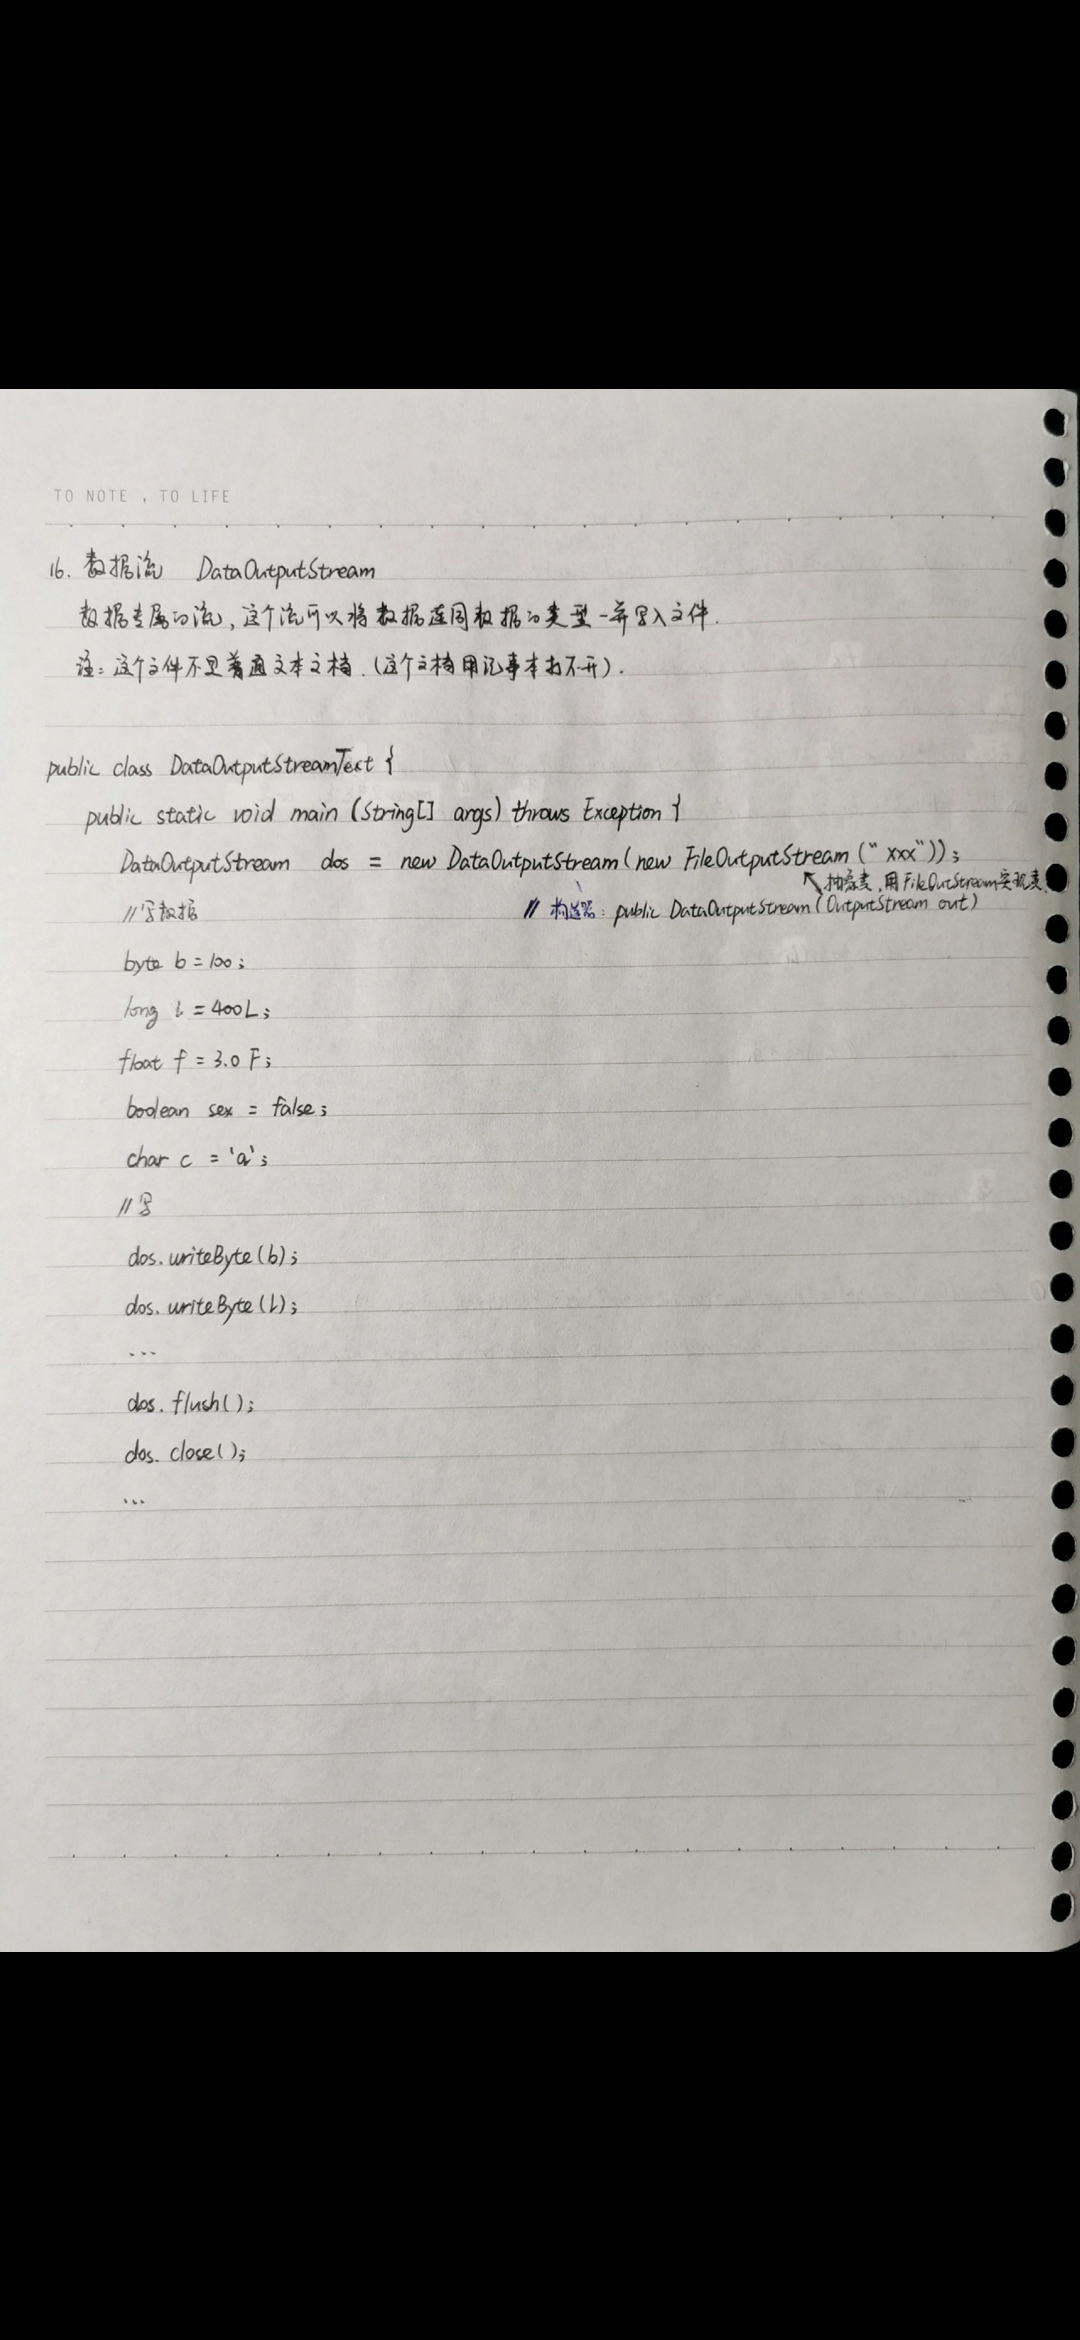 TO NOTE , TO LIFE
16. 数据流 DataOutputStream
数据专属的流，这个流可以将数据连同数据的类型一并写入文件.
注：这个文件不是普通文本文档.（这个文档用记事本打不开）.
public class DataOutputStreamTest {
public static void main (String[] args) throws Exception {
DataOutputStream dos = new DataOutputStream(new FileOutputStream ("xxx"));
抽象类,用FileOutStream实现类
//写数据 // 构造器: public DataOutputStream (OutputStream out)
byte b = 100;
long l = 400L;
float f = 3.0 F;
boolean sex = false;
char c = 'a';
//写
dos.writeByte(b);
dos.writeByte(l);
...
dos.flush();
dos.close();
...